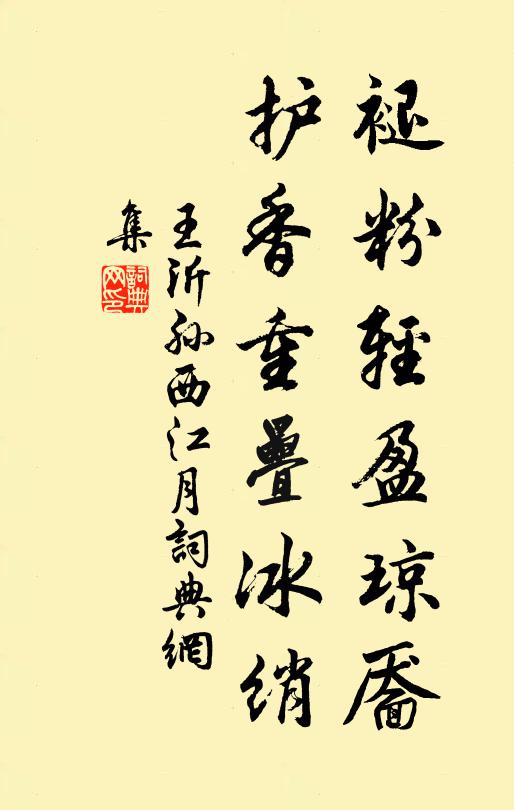 褪粉輕盈琼靥
护香重疊冰绡
王沂孙西江月詞典網
集
詞典
网印